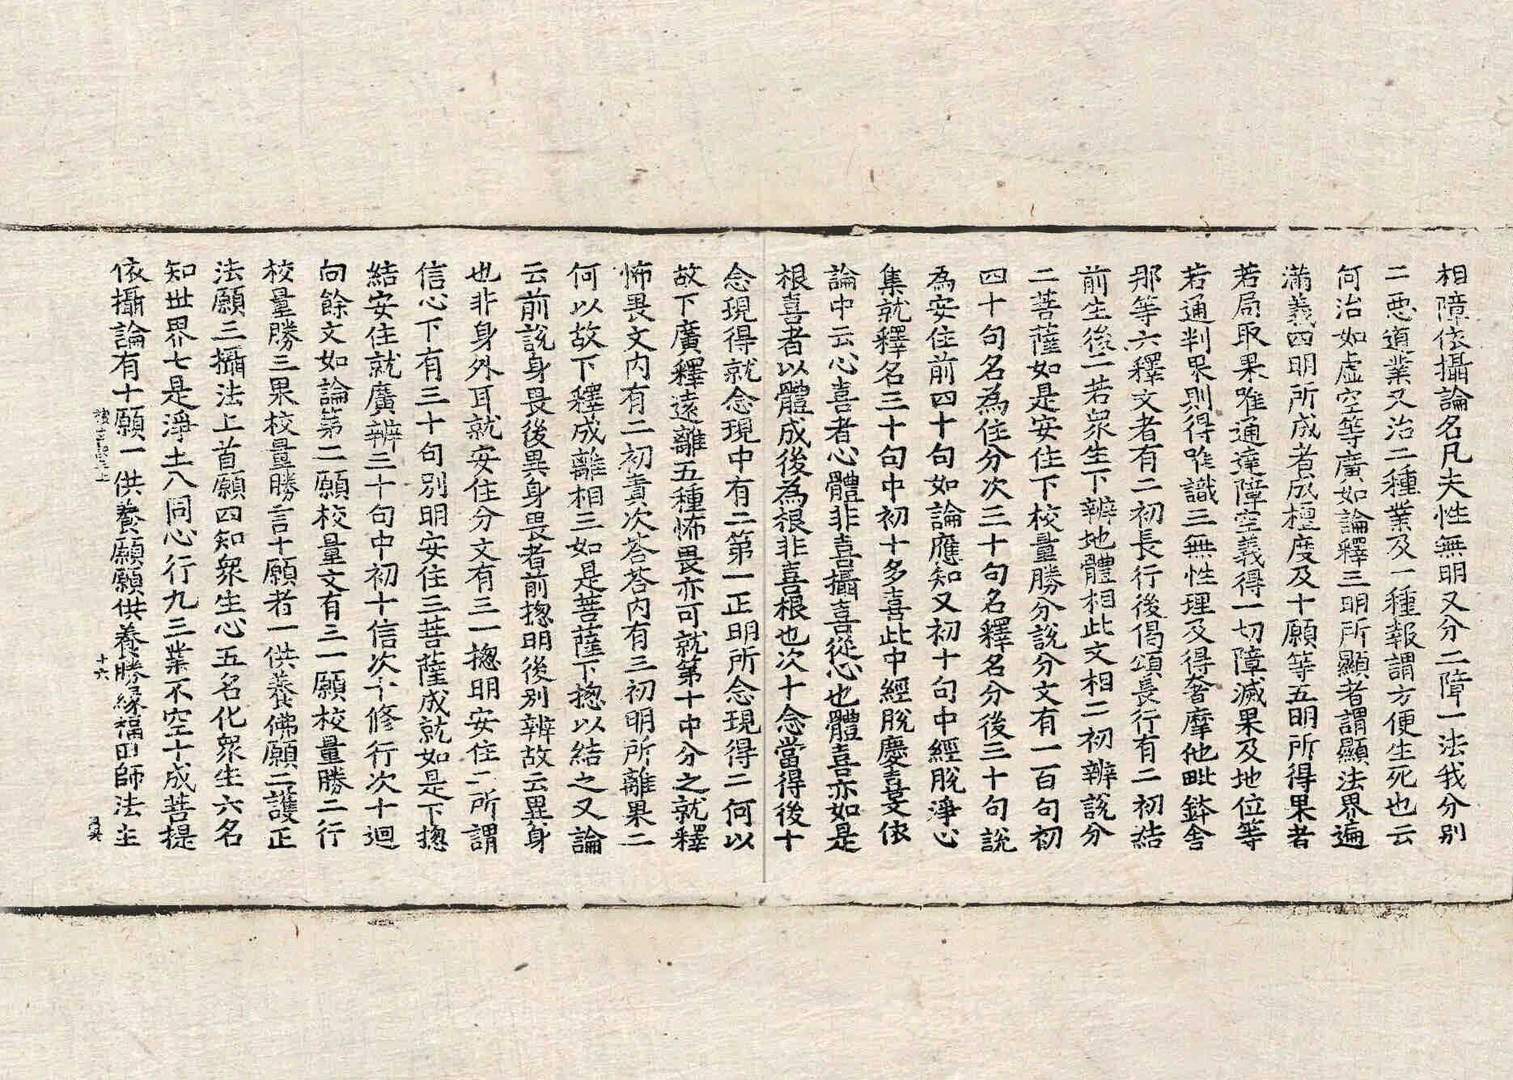 相障依攝論名凡夫性無明又分二障一法我分別
二惡道業又治二種業及一種報謂方便生死也云
何治如虛空等廣如論釋三明所顯者謂顯法界遍
滿義四明所成者成檀度及十願等五明所得果者
若局取果唯通達障空義得一切障滅果及地位等
若通判果則得唯識三無性理及得奢摩他毗鉢舍
那等六釋文者有二初長行後偈頌長行有二初結
前生後二若眾生下辨地體相此文相二初辨說分
二菩薩如是安住下校量勝分說分文有一百句初
四十句名為住分次三十句名釋名分後三十句說
為安住前四十句如論應知又初十句中經脫淨心
集就釋名三十句中初十多喜此中經脫慶喜文依
論中云心喜者心體非喜攝喜從心也體喜亦如是
根喜者以體成後為根非喜根也次十念當得後十
念現得就念現中有二第一正明所念現得二何以
故下廣釋遠離五種怖畏亦可就第十中分之就釋
怖畏文內有二初責次荅荅內有三初明所離果二
何以故下釋成離相三如是菩薩下揔以結之又論
云前說身畏後異身畏者前揔明後別辨故云異身
也非身外耳就安住分文有三一揔明安住二所謂
信心下有三十句別明安住三菩薩成就如是下揔
結安住就廣辨三十句中初十信次十修行次十迴
向餘文如論第二願校量文有三一願校量勝二行
校量勝三果校量勝言十願者一供養佛願二護正
法願三攝法上首願四知眾生心五名化眾生六名
知世界七是淨土八同心行九三業不空十成菩提
依攝論有十願一供養願願供養勝緣福田師法主
十六